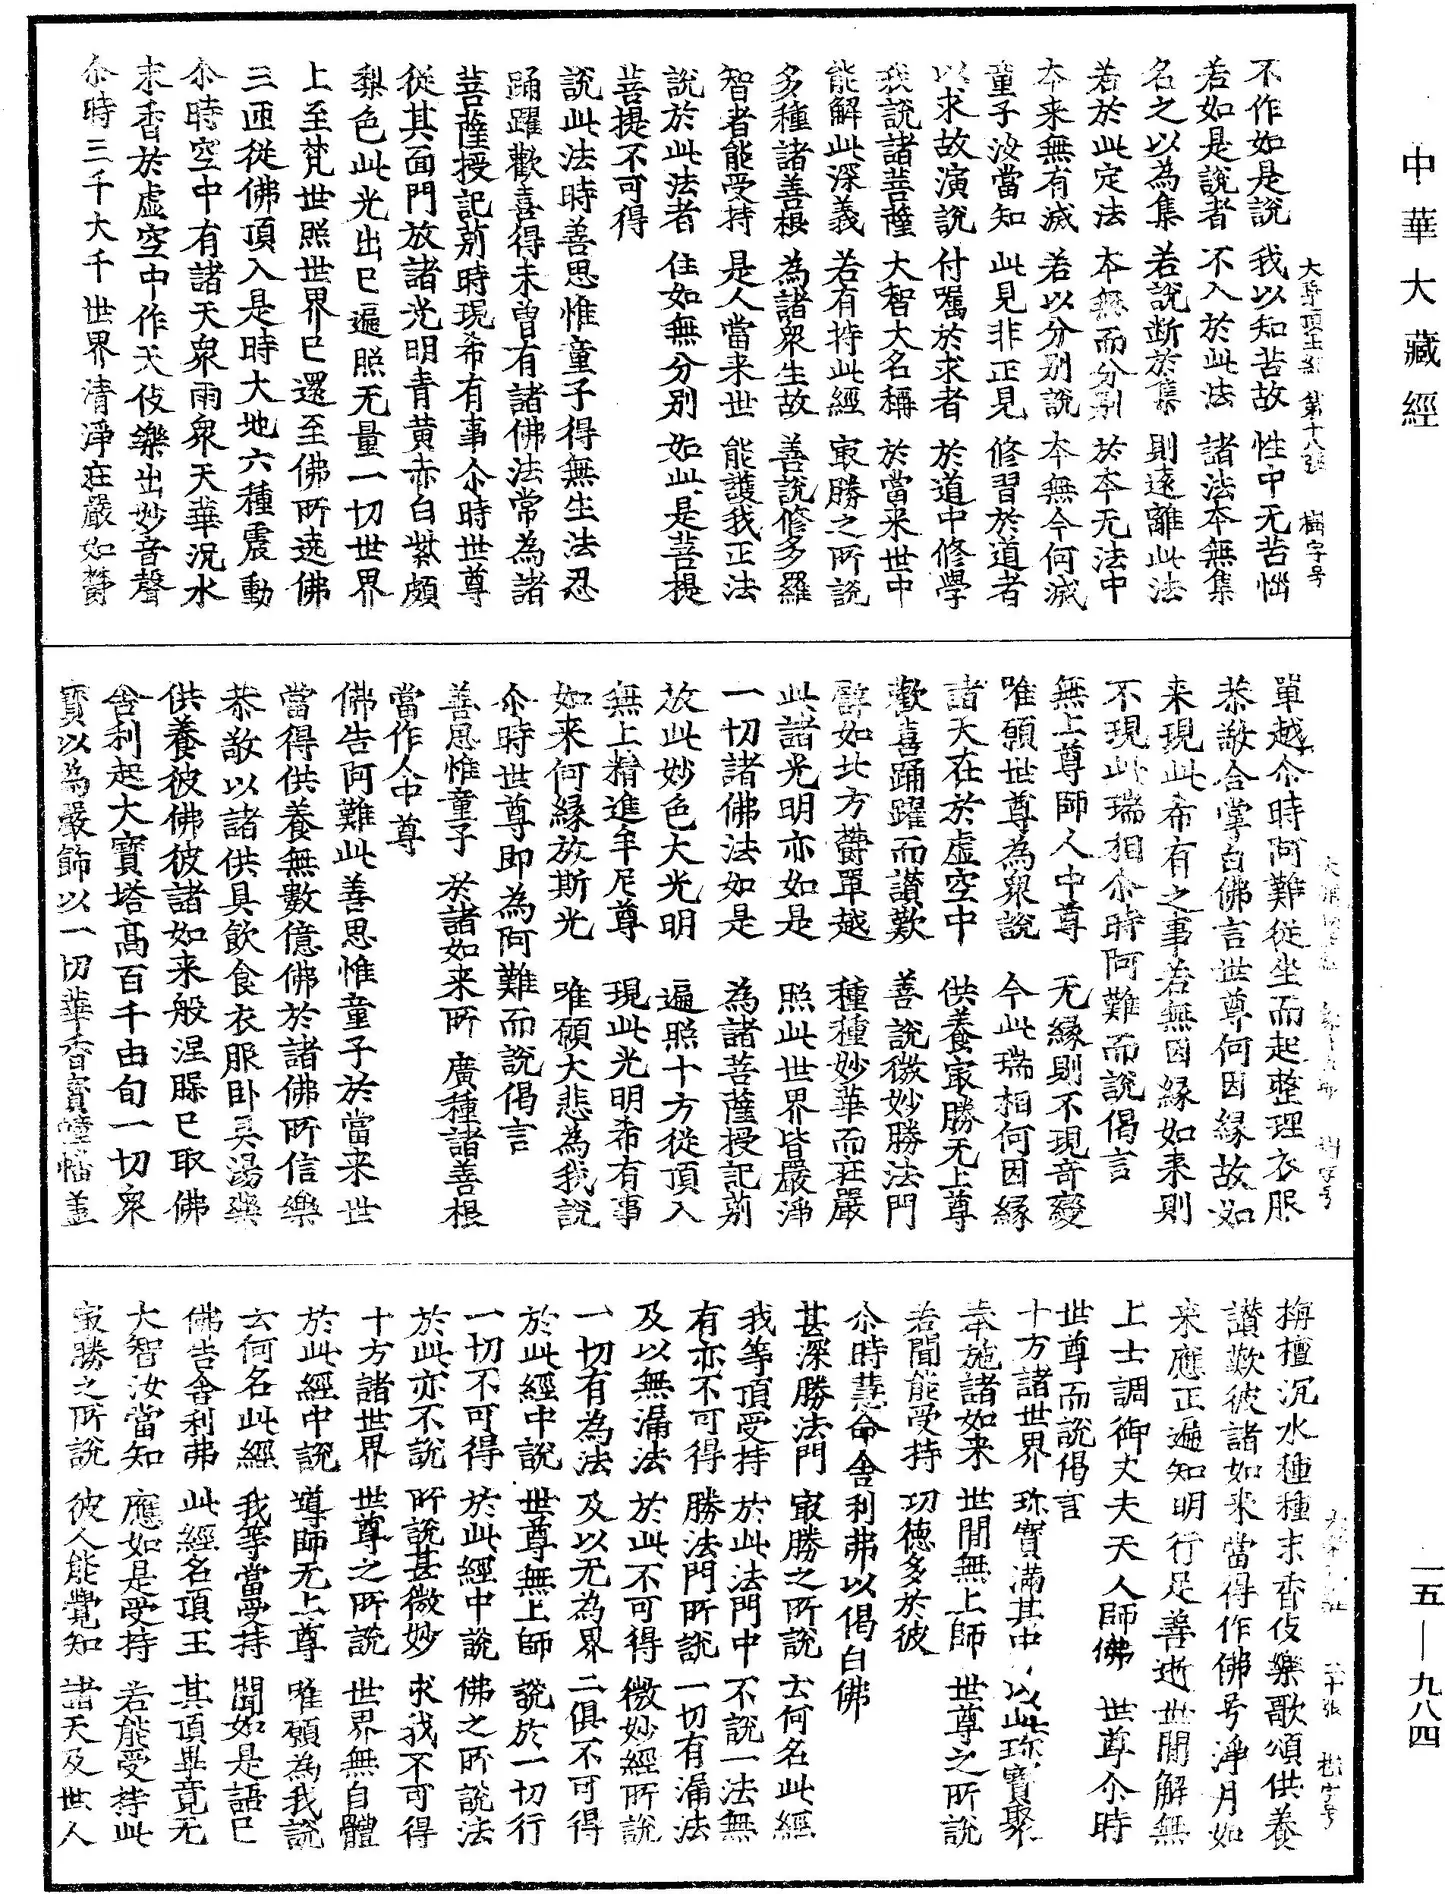 中華大藏經
不作如是說　我以知苦故　性中无苦惱
若如是說者　不入於此法　諸法本無集
名之以為集　若說斷於集　則遠離此法
若於此定法　本無而分別　於本无法中
本来無有滅　若以分別說　本無今何滅
童子汝當知　此見非正見　修習於道者
以求故演說　付嘱於求者　於道中修學
我說諸菩薩　大智大名稱　於當来世中
能解此深義　若有持此經　冣勝之所說
多種諸善根　為諸衆生故　善說修多羅
智者能受持　是人當来世　能護我正法
說於此法者　住如無分別　如此是菩提
菩提不可得
說此法時善思惟童子得無生法忍
踊躍歡喜得未曾有諸佛法常為諸
菩薩授記莂時現希有事尒時世尊
從其面門放諸光明青黄赤白紫頗
梨色此光出已遍照无量一切世界
上至梵世照世界已還至佛所遶佛
三匝從佛頂入是時大地六種震動
尒時空中有諸天衆雨衆天華沉水
末香於虛空中作天伎樂出妙音聲
尒時三千大千世界清淨莊嚴如欝
大藥頂王經　第十八張　樹字号
單越尒時阿難從坐而起整理衣服
恭敬合掌白佛言世尊何因緣故如
来現此希有之事若無因緣如来則
不現此瑞相尒時阿難而說偈言
無上尊師人中尊　无緣則不現竒變
唯願世尊為衆說　今此瑞相何因緣
諸天在於虛空中　供養冣勝无上尊
歡喜踊躍而讃歎　善說微妙勝法門
譬如北方欝單越　種種妙華而莊嚴
此諸光明亦如是　照此世界皆嚴淨
一切諸佛法如是　為諸菩薩授記莂
故此妙色大光明　遍照十方從頂入
無上精進牟尼尊　現此光明希有事
如来何緣放斯光　唯願大悲為我說
尒時世尊即為阿難而說偈言
善思惟童子　於諸如来所　廣種諸善根
當作人中尊
佛告阿難此善思惟童子於當来世
當得供養無數億佛於諸佛所信樂
恭敬以諸供具飲食衣服卧具湯藥
供養彼佛彼諸如来般涅槃已取佛
舍利起大寶塔高百千由旬一切衆
寶以為嚴飾以一切華香寶幢幡盖
栴檀沉水種種末香伎樂歌頌供養
讃歎彼諸如来當得作佛号淨月如
来應正遍知明行足善逝世間解無
上士調御丈夫天人師佛　世尊尒時
世尊而說偈言
十方諸世界　珎寶滿其中　以此珎寶聚
奉施諸如来　世間無上師　世尊之所說
若聞能受持　功德多於彼
尒時慧命舍利弗以偈白佛
甚深勝法門　冣勝之所說　云何名此經
我等頂受持　於此法門中　不說一法無
有亦不可得　勝法門所說　一切有漏法
及以無漏法　於此不可得　微妙經所說
一切有為法　及以无為界　二俱不可得
於此經中說　世尊無上師　說於一切行
一切不可得　於此經中說　佛之所說法
於此亦不說　所說甚微妙　求我不可得
十方諸世界　世尊之所說　世界無自體
於此經中說　導師无上尊　唯願為我說
云何名此經　我等當受持　聞如是語已
佛告舍利弗　此經名頂王　其頂畢竟无
大智汝當知　應如是受持　若能受持此
冣勝之所說　彼人能覺知　諸天及世人
二十張　樹字号
一五—九八四